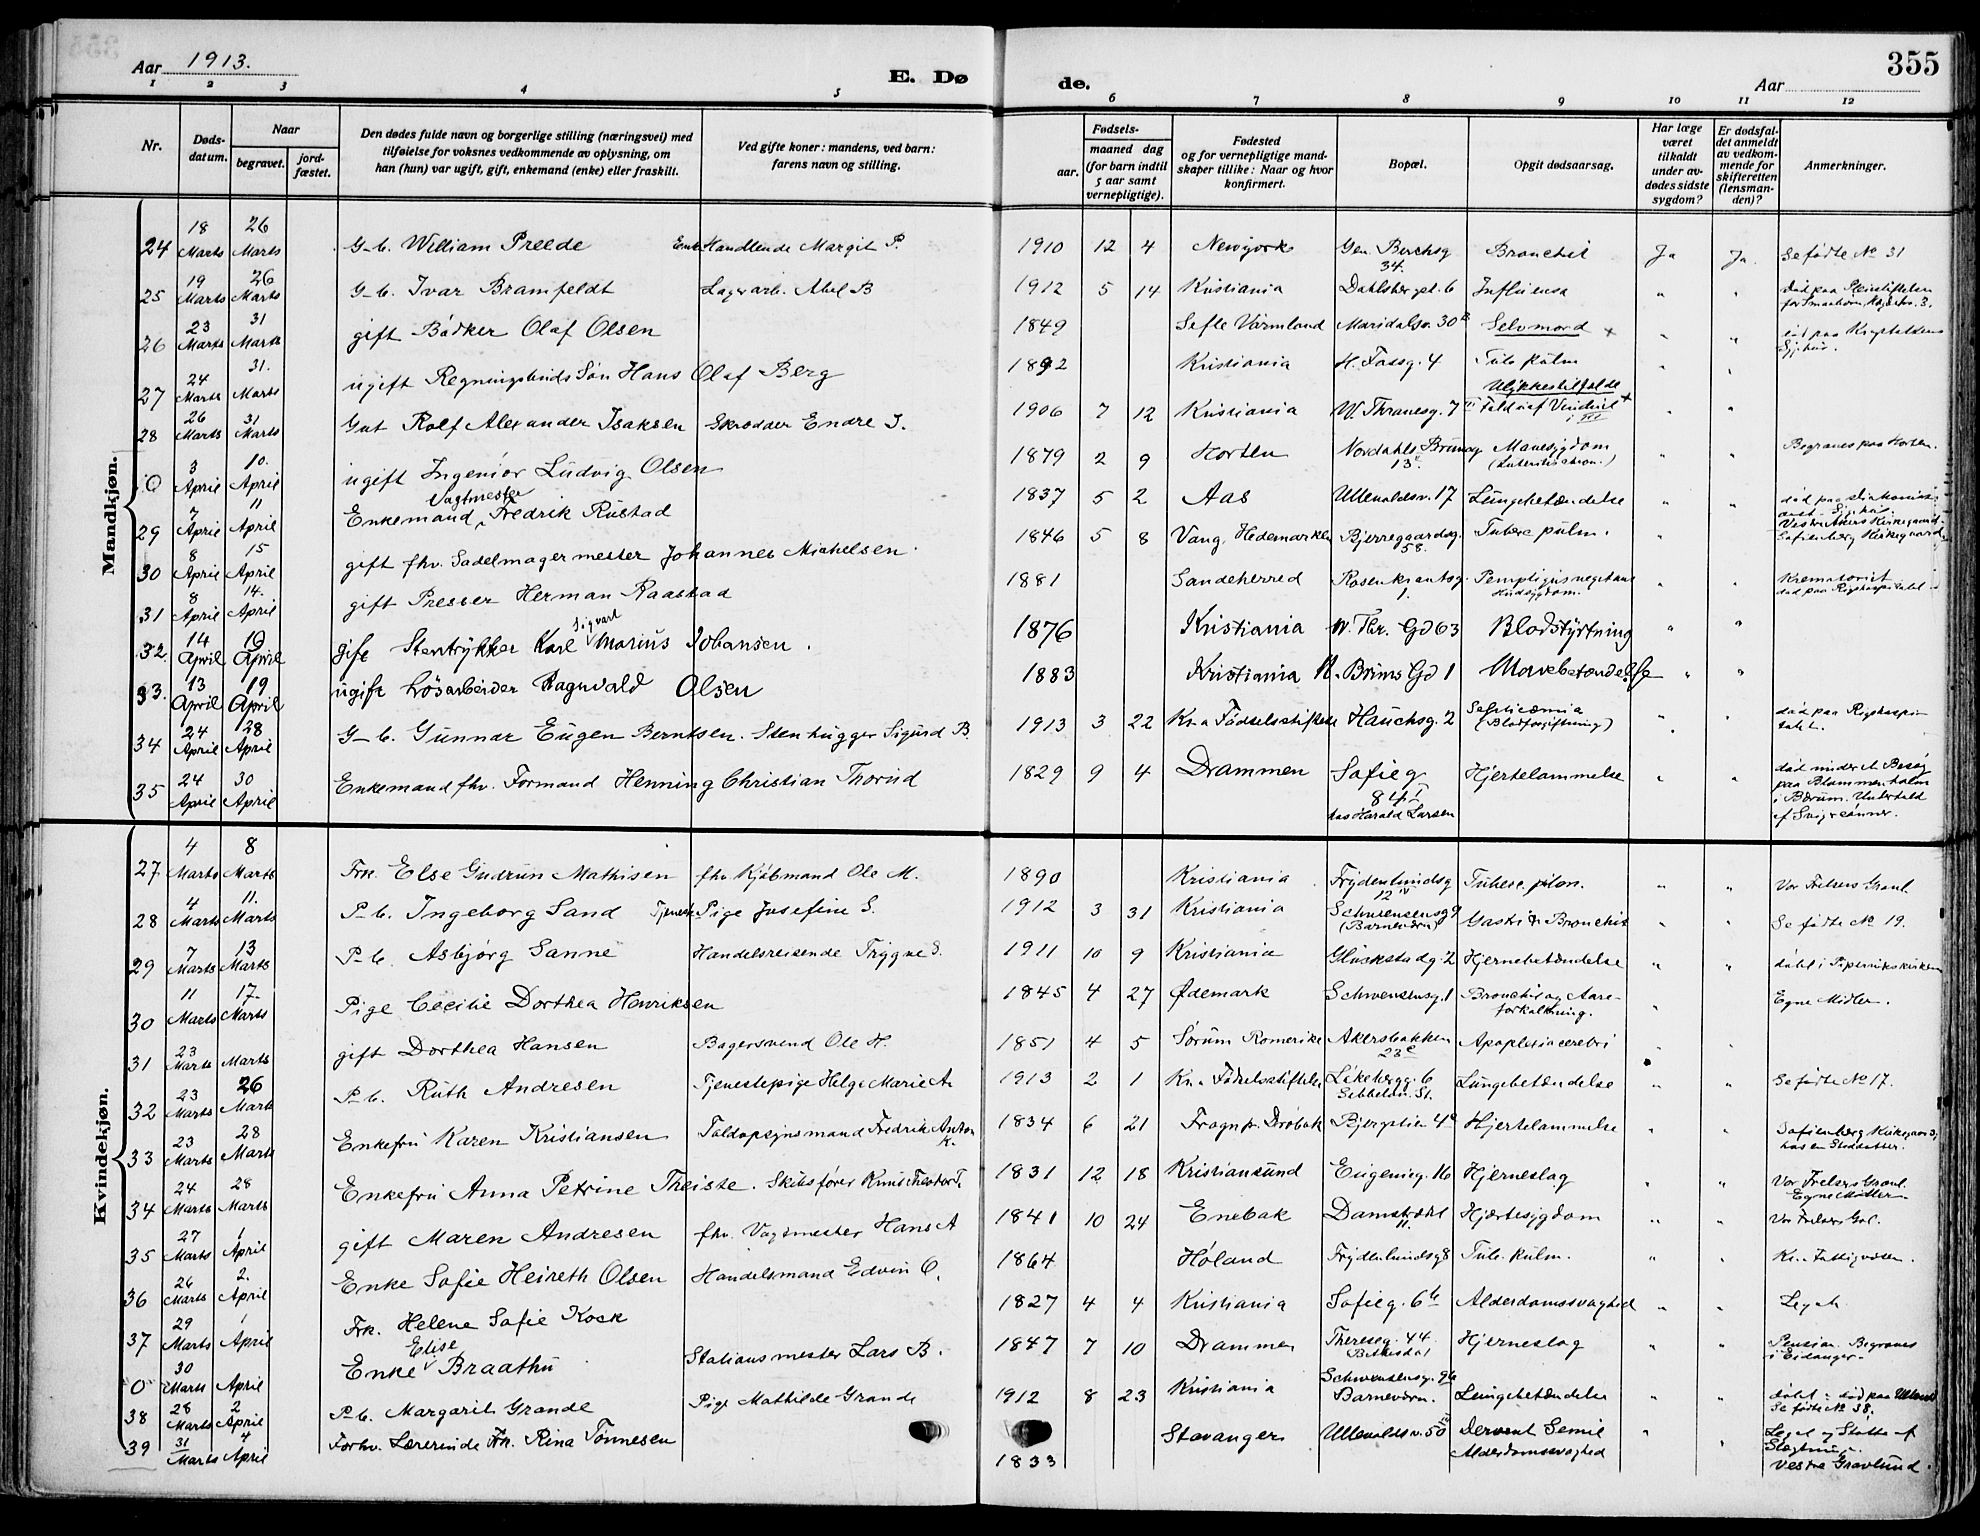 Aar 1913.
E. Dø de.
Aar
355
1 2 3 4 5 6 7 8 9 10 11 12
Nr.
Døds-datum.
Naar
begravet.
jord-fæstet.
Den dødes fulde navn og borgerlige stilling (næringsvei) med
tilføielse for voksnes vedkommende av oplysning, om
han (hun) var ugift, gift, enkemand (enke) eller fraskilt.
Ved gifte koner: mandens, ved barn:
farens navn og stilling.
Fødsels-
aar.
maaned dag
(for barn indtil
5 aar samt
vernepligtige).
Fødested
og for vernepligtige mand-
skaper tillike: Naar og hvor
konfirmert.
Bopæl.
Opgit dødsaarsag.
Har læge
været
tilkaldt
under av-
dødes sidste
sygdom?
Er dødsfal-
det anmeldt
av vedkom-
mende for
skifteretten
(lensman-
den)?
Anmerkninger.
Mandkjøn.
24 18 Marts 26 Marts G-b. William Preede Enke Handlende Margit P. 1910 12 4 Newyork Gen. Berchsg 34. Bronchit Ja Ja. Se fødte No 31
25 19 Marts 26 Marts G-b. Ivar Bramfeldt Lagerarb. Abel B 1912 5 14 Kristiania Dahlsbergst. 6 Influensa " " død paa Pleiestiftelsen for Smaabørn,
26 23 Marts 31 Marts gift Bødker Olaf Olsen 1849 Sefle Värmland Maridalsv. 30 B Selvmord + " " død paa Sygehus.
27 24 Marts 31. Marts ugift Regningsbuds Søn Hans Olaf Berg 1892 Kristiania H. Fossg. 4 Tub. pulm " "
28 26 Marts 31 Marts Gut Rolf Alexander Isaksen Skrædder Endre I. 1906 7 12 Kristiania W. Thranesg. 7 III Ulykkestilfælde Fald ud af Vindue i III + " "
0 3 April 10. April ugift Ingeniør Ludvig Olsen 1879 2 9 Horten Nordahl Brunsg 13 Mavesygdom " " Begraves paa Horten.
29 7 April 11 April Enkemand Vagtmester Fredrik Rustad 1837 5 2 Aas Ullevaldsv. 17 Lungebetændelse " " død paa diakonisse- anst. Sygehus. Vestre Akers Kirkegaard
30 8 April 15 April gift fhv. Sadelmagermester Johannes Michelsen. 1846 5 8 Vang, Hedemarken Bjerregaardsg. 58. Tuberc pulm. " Sofienberg Kirkegaard
31 8 April 14. April gift Presser Herman Raastad 1881 Sandeherred Rosenkrantsg. 1. Pemphigus vegetans Hudsygdom. " " Krematoriet død paa Rigshospitalet
32 14 April 19 April gift Stentrykker Karl Sigvart Marius Johansen. 1876 Kristiania W. Thr. Gd 63 Blodstyrtning " "
33. 13 April 19 April ugift Løsarbeider Ragnvald Olsen 1883 Kristiania N. Bruns Gd 1 Mavebetændelse " "
34 24 April 28 April G-b. Gunnar Eugen Berntsen. Stenhugger Sigurd B. 1913 3 22 Kr.a Fødselsstiftelse Hauchsg. 2 Septicæmia (Blodforgiftning) " " død paa Rigshospi- talet.
35 24 April 30 April Enkemand fhv. Formand Henning Christian Thorud 1829 9 4 Drammen Sofieg 84 I hos Harald Larsen Hjertelammelse " " død under et Besøg paa Blommenholm i Bærum. Underhold af Svigersønner.
Kvindekjøn.
27 4 Marts 8 Marts Frk. Else Gudrun Mathisen fhv. Kjøbmand Ole M. 1890 Kristiania. Frydenlundsg 12 IV Tuberc. pulm. " " Vor Frelsers Gravl.
28 4 Marts 11. Marts P-b. Ingeborg Sand Tjeneste Pige Josefine S. 1912 3 31 Kristiania Schwensensg 9 (Barnevern) Gastrit & Bronchit " " Se fødte No 19.
29 7 Marts 13 Marts P-b. Asbjørg Sanne Handelsreisende Trygve S. 1911 10 9 Kristiania Glückstadg. 2 Hjernebetændelse " " døbt i Piperviks kirken
30 11 Marts 17. Marts Pige Cecilie Dorthea Henriksen 1845 4 27 Ødemark Schwensensg. 1 Bronchit og Aare- forkalkning. " Egne Midler.
31 23 Marts Marts gift Dorthea Hansen Bagersvend Ole H. 1851 4 5 Sørum Romerike Akersbakken 23 c Apoplexia cerebri "
32 23 Marts 26 Marts P-b. Ruth Andresen Tjenestepige Helga Marie A. 1913 2 1 Kr.a Fødselsstiftelse Løkebergg. 6 Lungebetændelse " " Se fødte No 17.
33 23 Marts 28 Marts Enkefru Karen Kristiansen Toldopsynsmand Fredrik Anton K. 1834 6 21 Frogn pr. Drøbak Bjergstien 4 a Hjertelammelse " " Sofienberg Kirkegaard, hos en Steddatter.
34 24 Marts 28 Marts Enkefru Anna Petrine Theiste. Skibsfører Knut Theodor T. 1831 12 18 Kristiansund Eugenieg. 16 Hjerneslag " " Vor Frelsers Gravl. Egne Midler
35 27 Marts 1 April gift Maren Andresen fhv. Vagtmester Hans A 1841 10 24 Enebak Damstrædet 11. Hjertesygdom " " Vor Frelsers Gvl.
36 26 Marts 2. April Enke Sofie Heireth Olsen Handelsmand Edvin O. 1864 Høland Frydenlundsg 8 Tub. pulm. " " Kr.a Fattigvæsen.
37 29 Marts 1 April Frk. Helene Sofie Kock 1827 4 4 Kristiania Sofieg. 6 b Alderdomssvaghed " " Legat.
0 30 Marts April Enke Elise Braathu Stationsmester Lars B. 1847 7 10 Drammen Thereseg. 44. Bethesda Hjerneslag " " Pension. Begraves i Eidanger.
38 28 Marts 2 April P-b. Margarit Grande Pige Mathilde Grande 1912 8 23 Kristiania Schwensensg. 9 b Barnevern. Lungebetændelse " " døbt i død paa Ullevaal Se fødte No 38.
39 31 Marts 4 April Forhv. Lærerinde Frk. Rina Tønnesen 1833 Stavanger Ullevaldsv. 50 Dement Senil Alderdomssvaghed " " Legat og Støtte af Slægtninge. Vestre Gravlund.